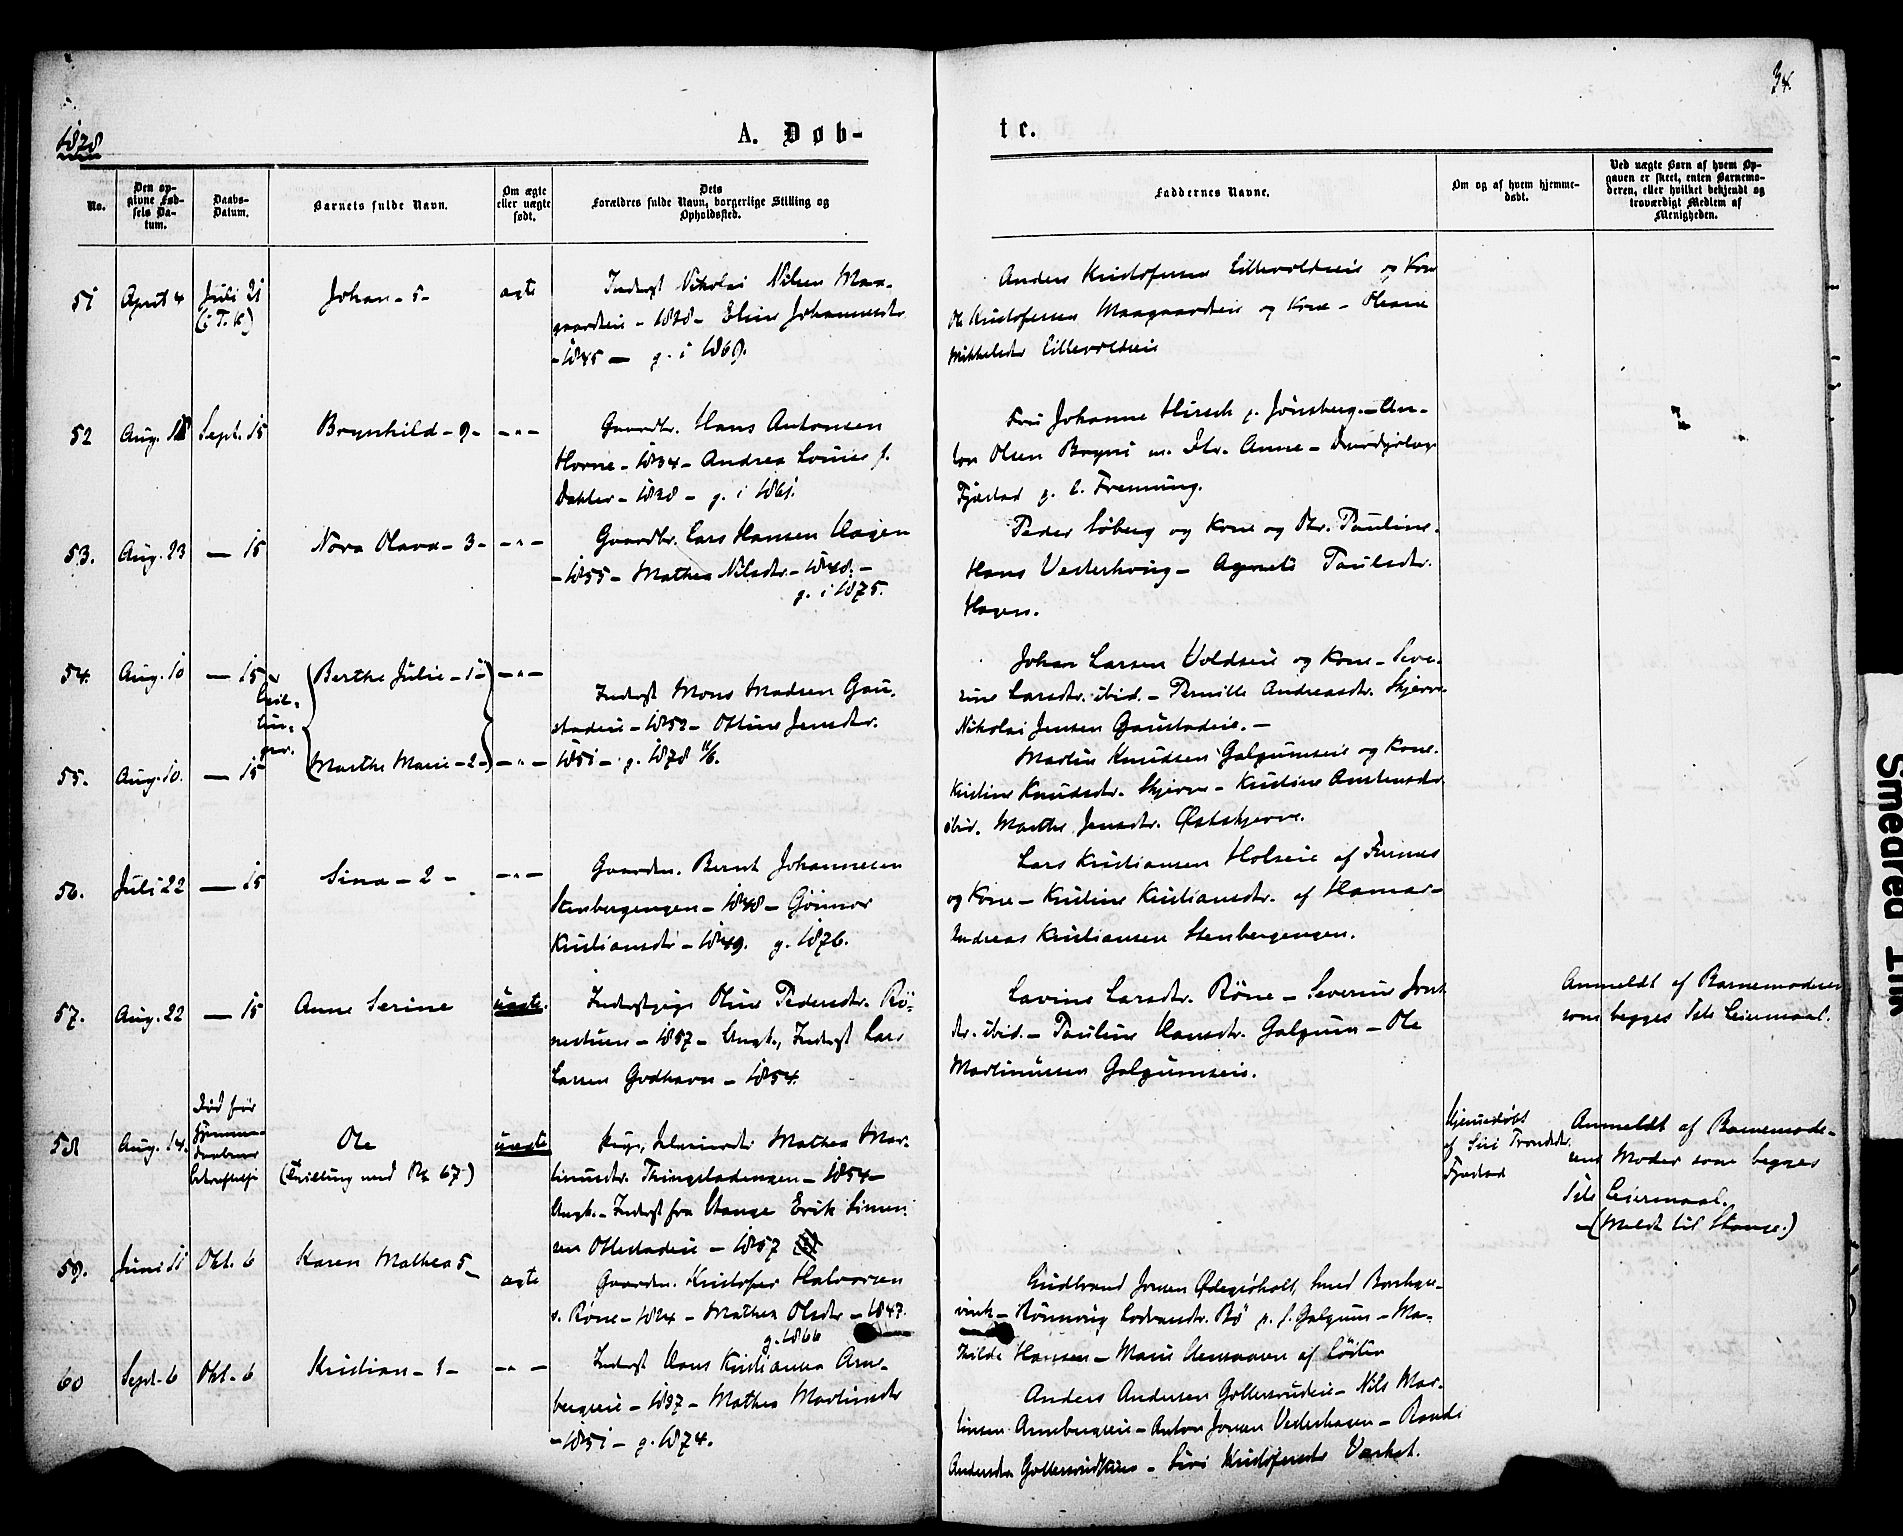 1878
A. Døb-
te.
34.
No.
Den op-
givne Fød-
sels Da-
tum.
Daabs-
Datum.
Barnets fulde Navn.
Om ægte
eller uægte
født.
Dets
Forældres fulde Navn, borgerlige Stilling og
Opholdssted.
Faddernes Navne.
Om og af hvem hjemme-
døbt.
Ved uægte Barn af hvem Op-
gaven er skeet, enten Barnemo-
deren, eller hvilket bekjendt og
troværdigt Medlem af
Menigheden.
51
April 4
Juli 21
(i T. K)
Johan - 5 -
ægte
Inderst Nikolai Nilsen Maa-
gaardeie - 1838 - Eline Johannesdtr
- 1845 - g. i 1869.
Anders Kristofersen Lillevoldseie og Kone
Ole Kristofersen Maagaardeie og Kone - Oleane
Mikkelsdtr Lillevoldseie
52
Aug. 18
Sept. 15
Brynhild - 9 -
- " -
Gaardbr. Hans Antonsen
Horne - 1834 - Andrea Louise f.
Dahler - 1838 - g. i 1861.
Fru Johanne Hirsch p. Jønsberg - An-
ton Olsen Bryni m. Dtr. Anne -
Fjæstad
53.
Aug. 23
— 15
Nora Olava - 3 -
- " -
Gaardbr. Lars Hansen Hagen
- 1855 - Mathea Nilsdtr. - 1848. -
g. i 1875.
Peder Søberg og Kone og Dtr. Pauline -
Hans Vesterhaug - Agnete Paulsdtr.
Hagen.
54.
Aug. 10
— 15
Tvil-
lin-
ger.
Berthe Julie - 1 -
- " -
Inderst Mons Madsen Gau-
stadeie - 1852 - Otline Jensdtr.
1851 - g. 1878 11/6.
Johan Larsen Voldseie og Kone - Seve-
rine Larsdtr. ibid. - Pernille Andreasdtr. Skjerve
Nikolai Jensen Gaustadeie. -
55.
Aug. 10.
— 15
Marthe Marie - 2 -
- " -
Martin Knudsen Galgumseie og Kone.
Kristine Knudsdtr. Skjerve - Kristine Amundsdtr
ibid. Marthe Jensdtr. Østskjerve.
56.
Juli 22
— 15
Sina - 2 -
- " -
Gaardm. Bernt Johannesen
Stenbergengen - 1848 - Gunnor
Kristiansdtr - 1849. g. 1876.
Lars Kristiansen Holseie af Furnes
og Kone - Kristine Kristiansdtr. af Hamar -
Andreas Kristiansen Stenbergengen.
57.
Aug. 22
— 15
Anne Serine
uægte
Inderstpige Oline Pedersdtr. Rø-
nestuen - 1857 - Ungk., Inderst Lars
Larsen Godhavn - 1854.
Lavine Larsdtr. Røne - Severine
dtr. ibid. - Pauline Hansdtr. Galgum - Ole
Martinussen Galgumseie.
Anmeldt af Barnemoderen
som begges 1ste Leiermaal.
58
Aug. 14.
Død før
Ole
(Tvilling med No 67)
uægte
Pige, Mathea Mar-
tinusdtr. Thingstadengen - 1854 -
Ungk. - Inderst fra Stange Erik Simen
sen Ottestadeie - 1857
Hjemmedøbt
af Siri Trondsdtr.
Fjæstad
Anmeldt af Barnemode-
rens Moder som begges
1ste Leiermaal.
- (Meldt til Stange.)
59.
Juni 11
Okt. 6
Karen Mathea 5 -
ægte
Gaardm. Kristofer Halvorsen
s. Røne - 1824 - Mathea Olsdtr - 1847.
g. 1866
Gudbrand Jonsen Ødegårholt, Smed
- Rønnaug Bø p. f. Galgum - Ma-
thilde Hansen - Marie af Løiten
60
Sept. 6
Okt. 6
Kristian - 1 -
- " -
Inderst Hans Kristiansen Arne-
bergeie - 1837 - Mathea Martinsdtr
- 1851 - g. 1874.
Anders Andersen Gollersrudeie - Nils Mar-
tinsen Arnebergeie - Anton Jonsen Vesterhagen - Randi
Andersdtr - Siri Kristofersdtr
Smeared Ink